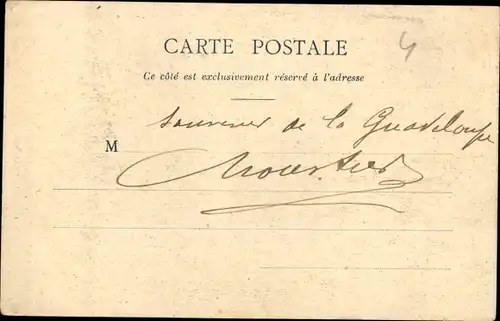 4
CARTE POSTALE
Ce côté est exclusivement réservé à l'adresse
Souvenir de la Guadeloupe
M